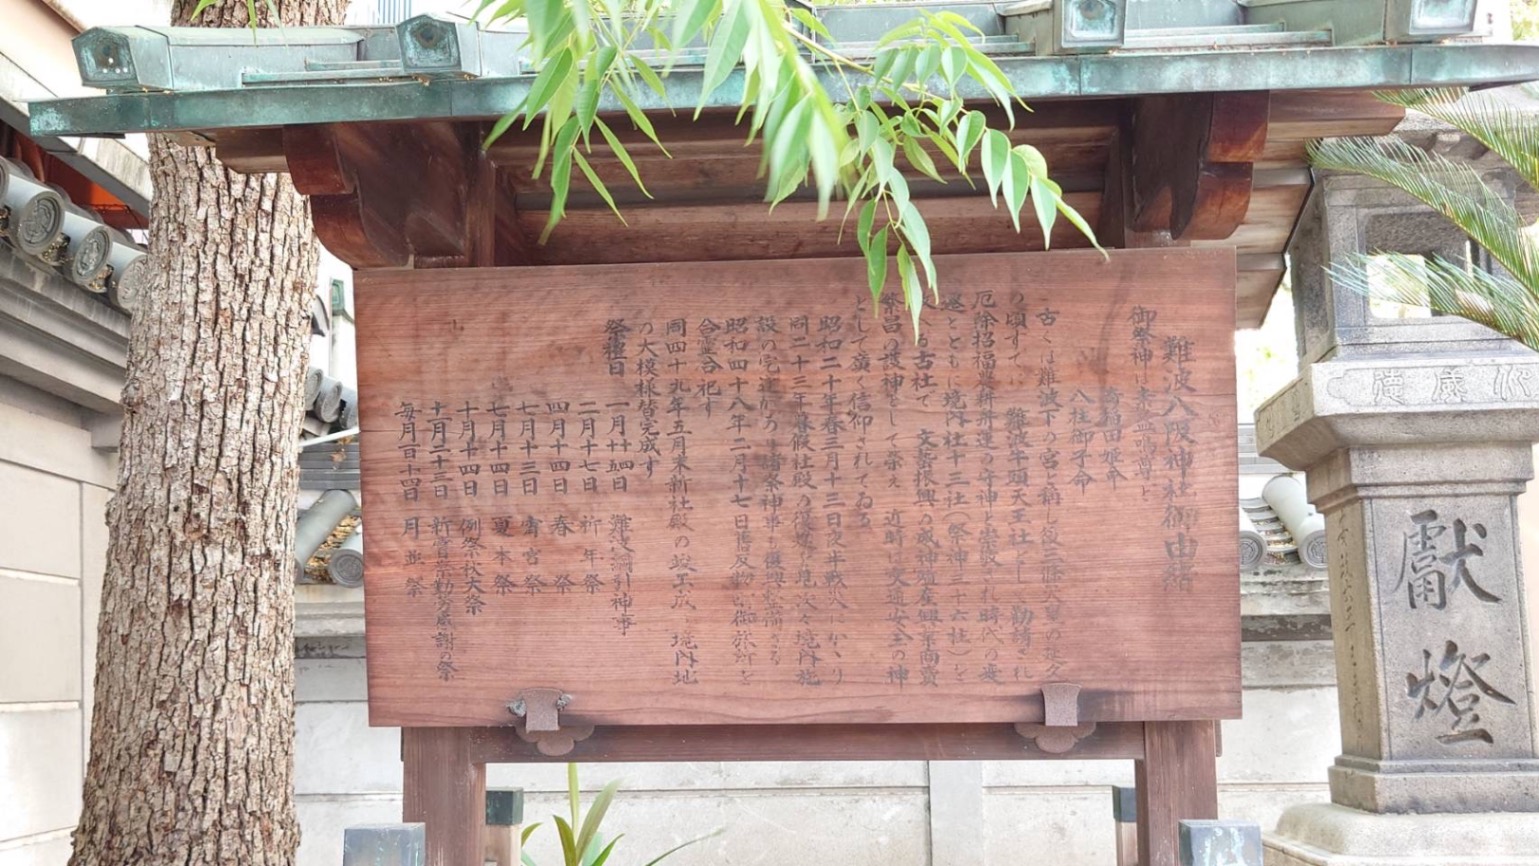 難波八阪神社御由緒
御祭神は素盞嗚尊と
奇稲田姫命
八柱御子命
古くは難波下の宮と稱し後三條天皇の延久
の頃すでに難波牛頭天王社として勤績され
厄除招福農耕昇運の守神と崇敬され時代の変
遷とともに境内社十三社(祭神三十六柱)を
敬へる古社で文藝振興の威神殖産興業商賣
繁昌の護神として榮え近時は交通安全の神
として廣く信仰されてゐる
昭和二十年春三月十三日夜半戦火にかゝり
同二十三年暮假社殿の復興を見次々境内施
設の完遂
諸祭神事も復興
昭和四十八年二月十七日舊反物町御旅所を
合霊合祀す
同四十九年五月末新社殿の竣工成り境内地
の大模様替完成す
祭禮日
一月廿四日 難波綱引神事
二月十七日 祈年祭
四月十四日 春祭
七月十三日 宵宮祭
七月十四日 夏本祭
十月十四日 例祭秋大祭
十一月二十三日 新嘗祭勤労感謝の祭
毎月百十四日 月並祭
獻燈